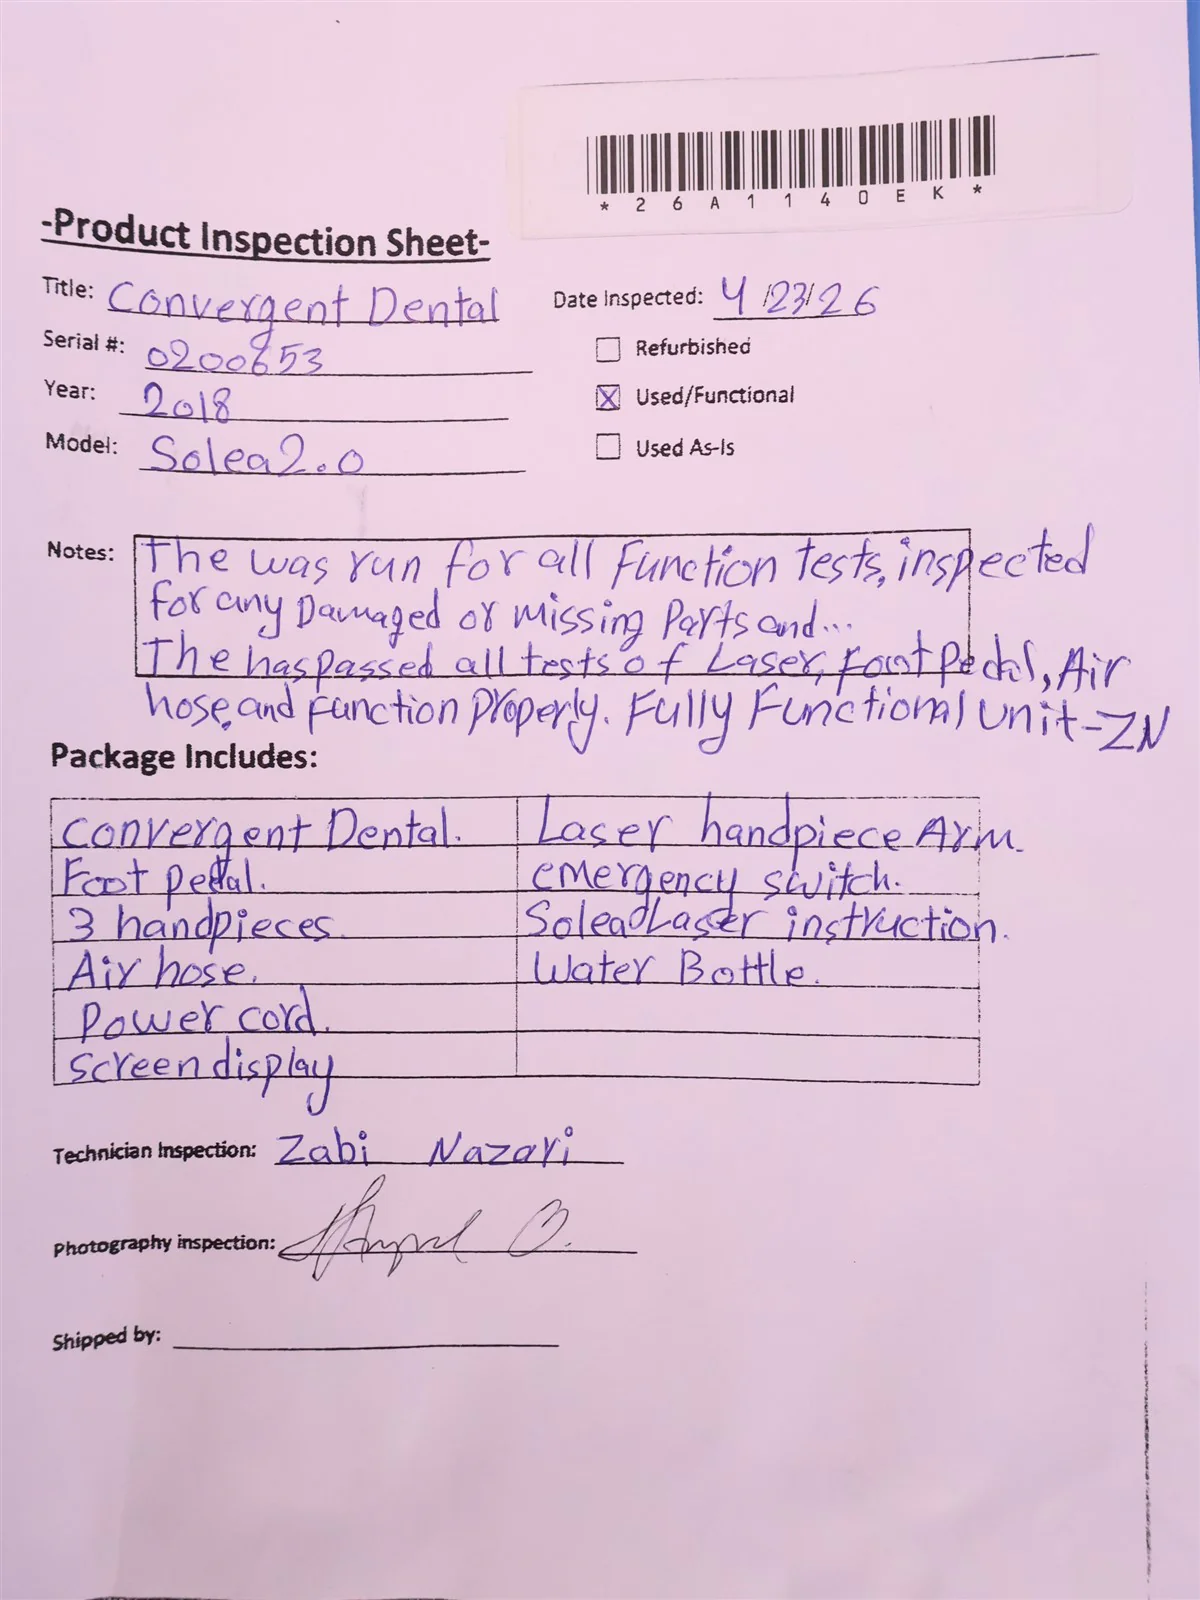 *26A1140EK*
-Product Inspection Sheet-
Title: Convergent Dental
Date Inspected: 4/23/26
Serial #: 0200653
Refurbished
Year: 2018
Used/Functional
Model: Solea2.0
Used As-Is
Notes: The was run for all Function tests, inspected
for any Damaged or missing Parts and...
The has passed all tests of Laser, Foot Pedal, Air
hose, and Function Properly. Fully Functional unit-ZN
Package Includes:
Convergent Dental. Laser handpiece Arm.
Foot pedal. emergency switch.
3 handpieces. Solea Laser instruction.
Air hose. Water Bottle.
Power cord.
Screen display
Technician Inspection: Zabi Nazari
Photography inspection:
Shipped by: